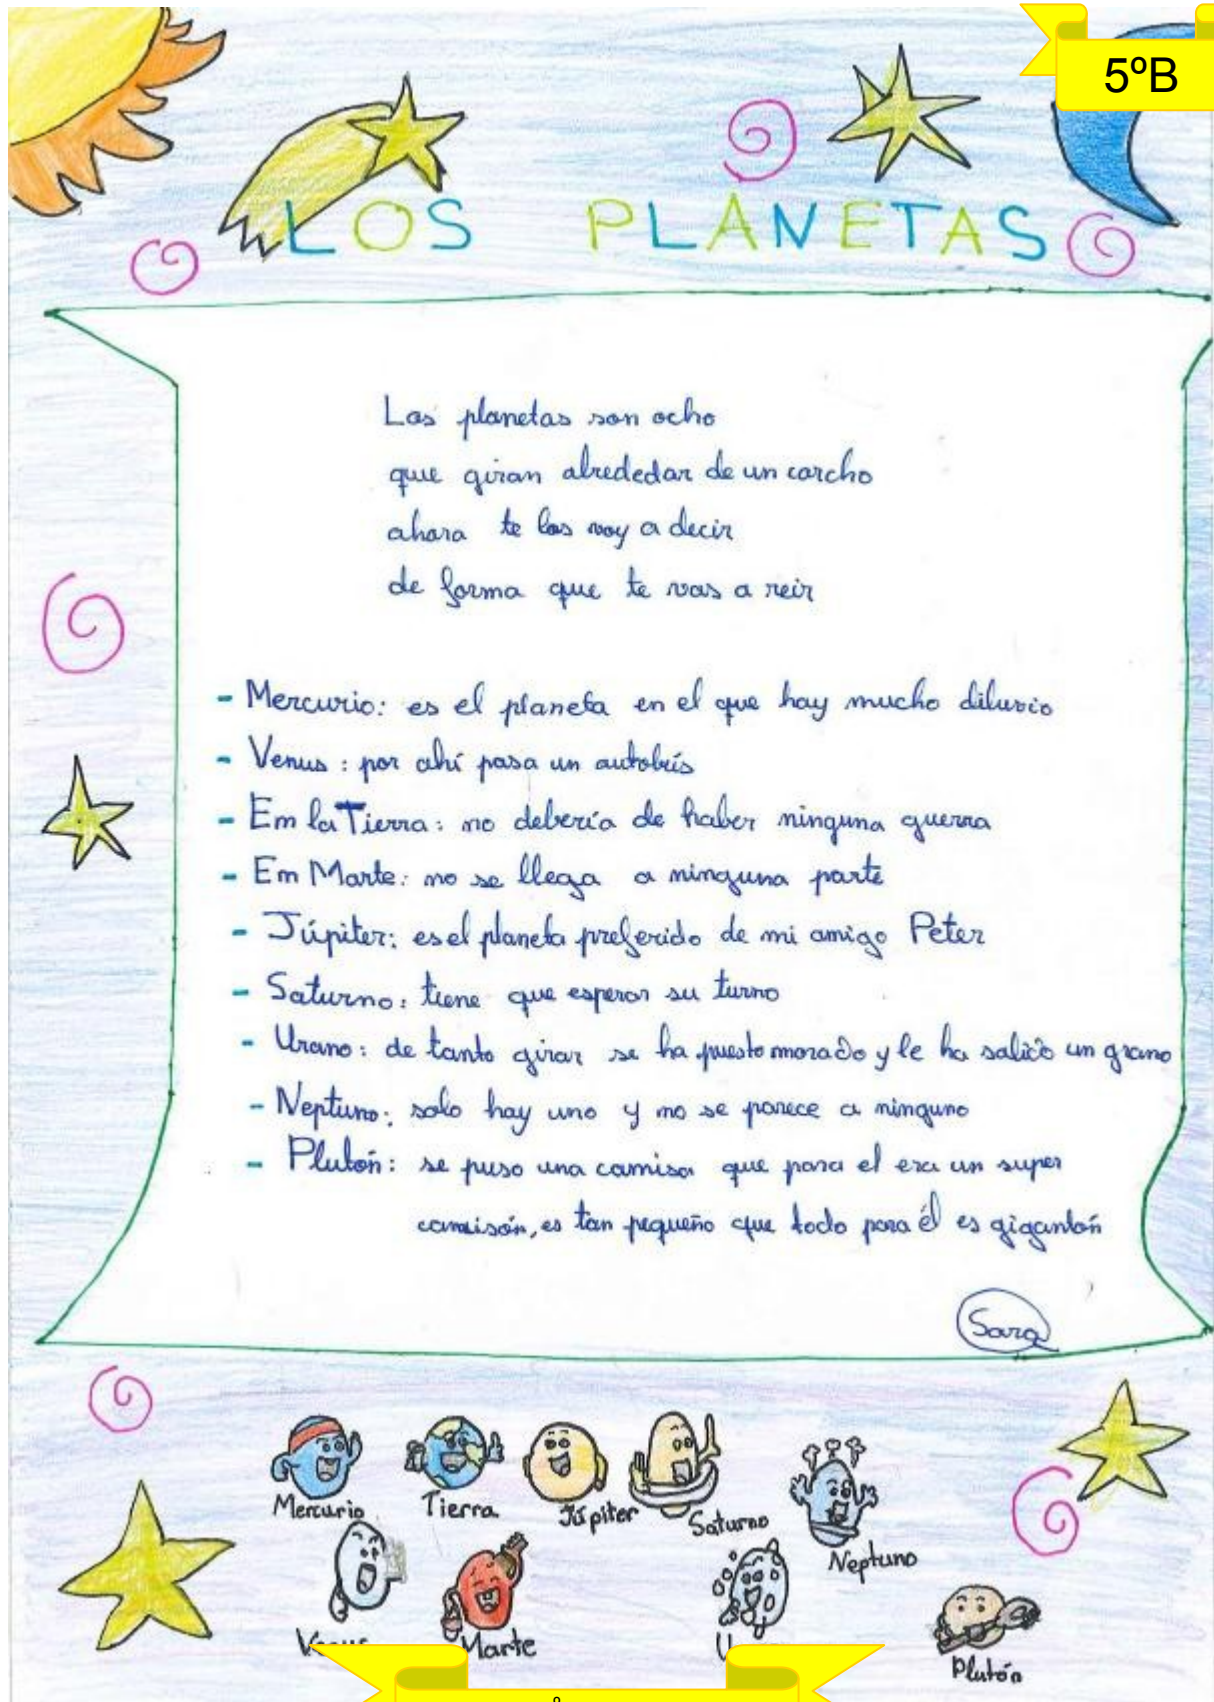 5ºB
LOS PLANETAS
Los planetas son ocho
que giran alrededar de un corcho
ahora te los voy a decir
de forma que te vas a reir
- Mercurio: es el planeta en el que hay mucho diluvio
- Venus: por ahí pasa un autobús
- Em la Tierra: no debería de haber ninguna guerra
- Em Marte: no se llega a ninguna parte
- Júpiter: es el planeta preferido de mi amigo Peter
- Saturno: tiene que esperar su turno
- Urano: de tanto girar se ha puesto morado y le ha salido un grano
- Neptuno: solo hay uno y no se parece a ninguno
- Plutón: se puso una camisa que para el era un super
camisón, es tan pequeño que todo para él es gigantón
Sara
Mercurio Tierra Júpiter Saturno
Neptuno
Venus Marte
Plutón